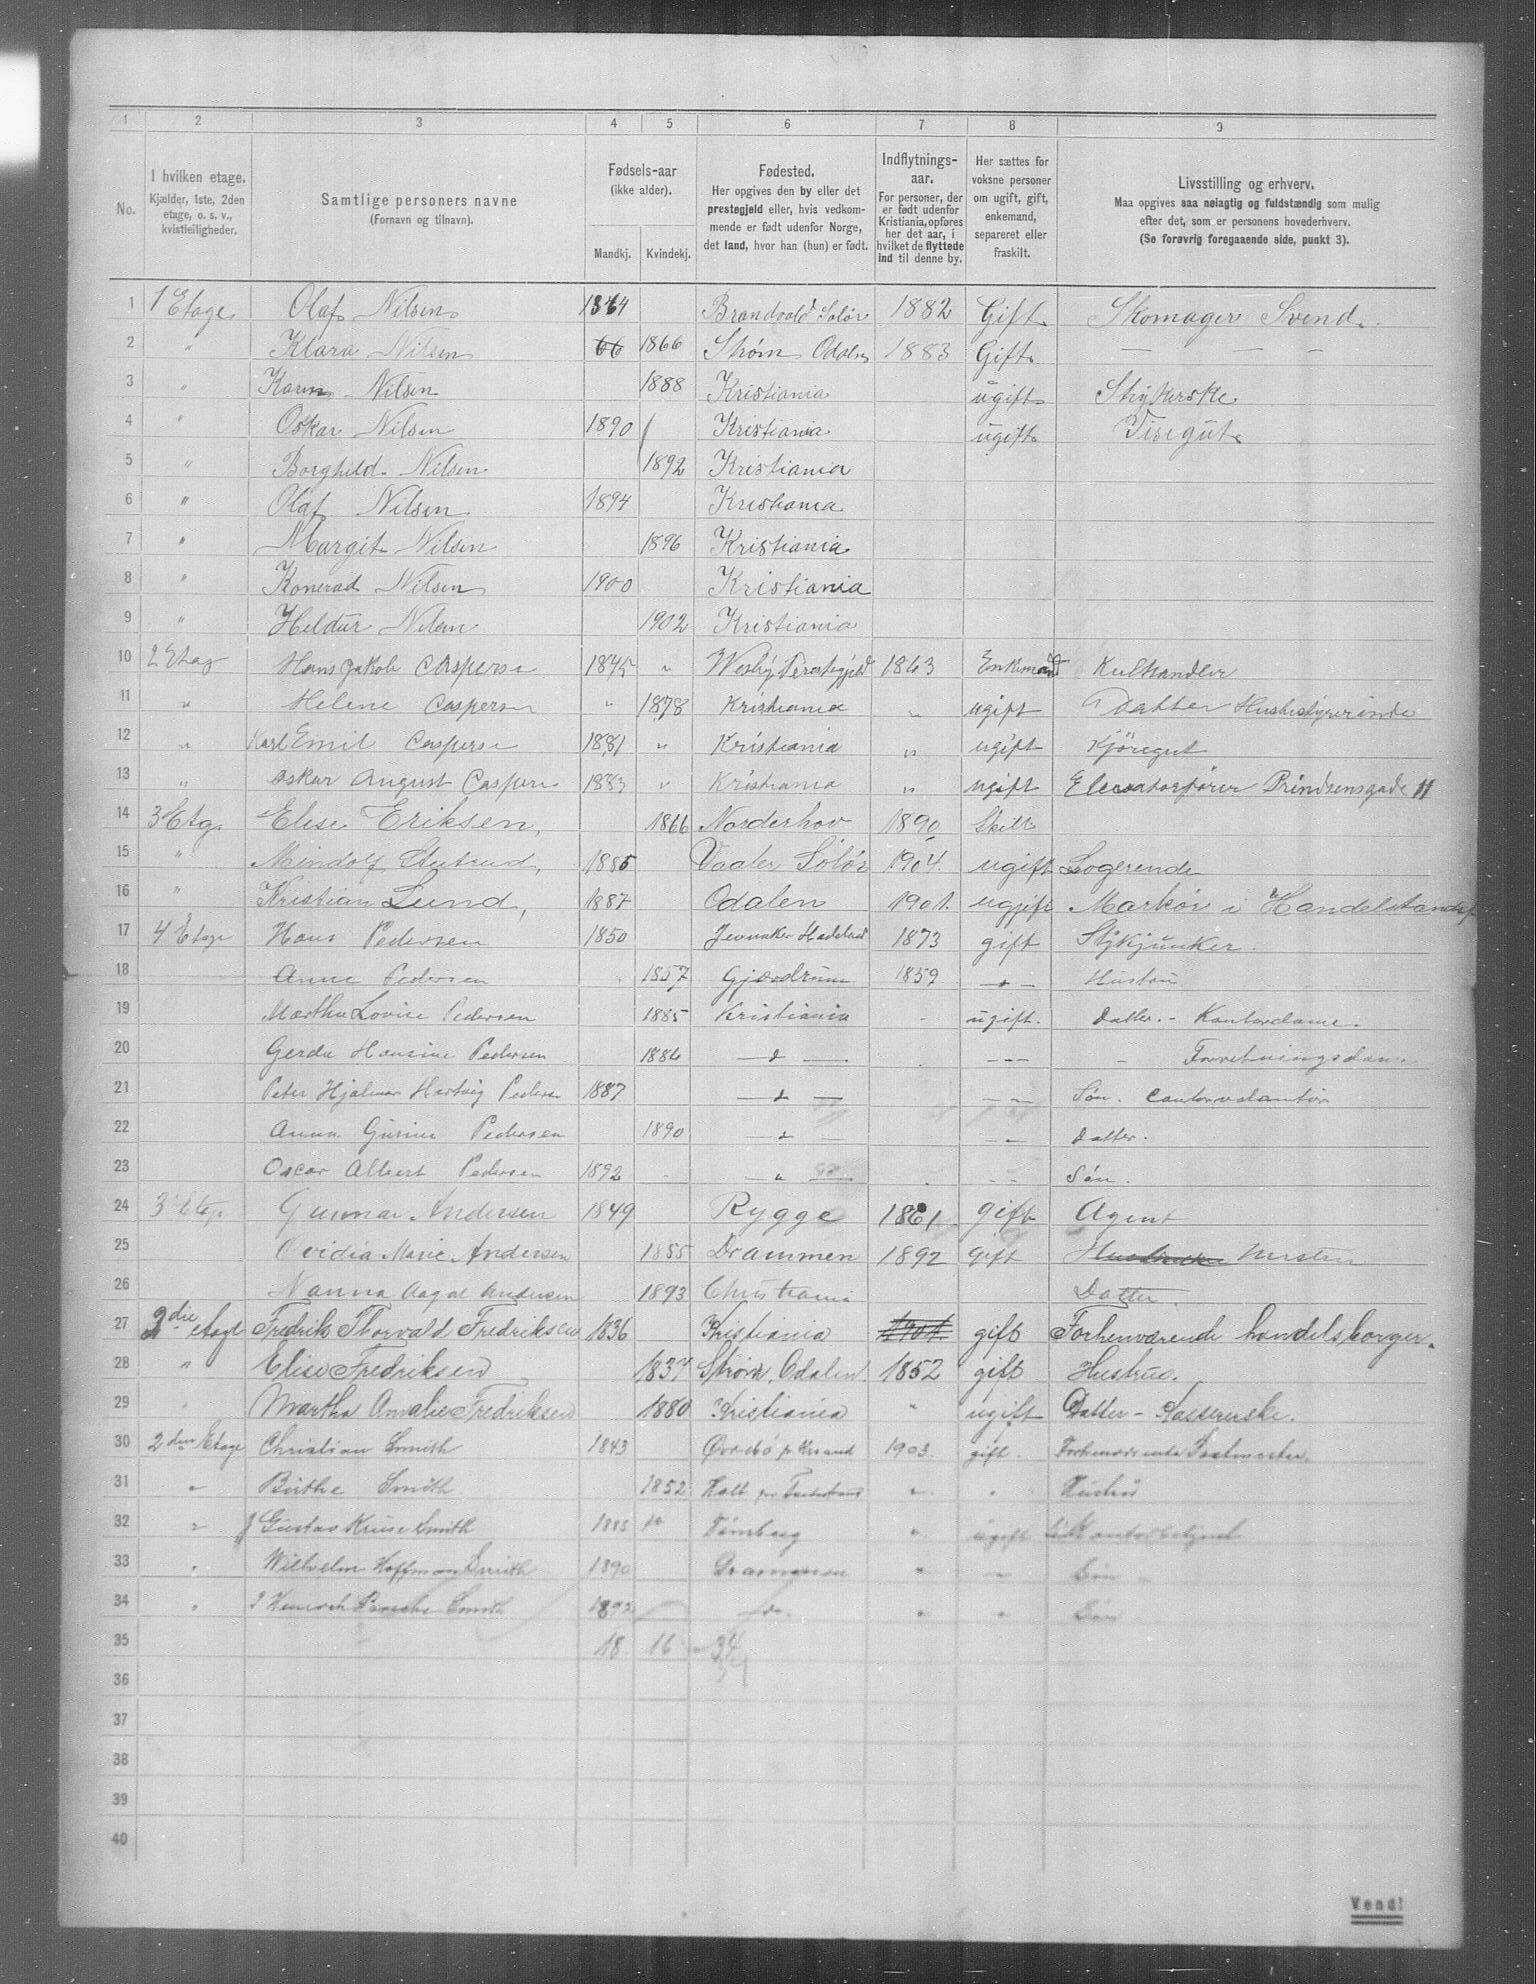 1 2 3 4 5 6 7 8 9
No.
I hvilken etage.
Kjælder, 1ste, 2den
etage, o. s. v.,
kvistleiligheder.
Samtlige personers navne
(Fornavn og tilnavn).
Fødsels-aar
(ikke alder).
Mandkj. Kvindekj.
Fødested.
Her opgives den by eller det
prestegjeld eller, hvis vedkom-
mende er født udenfor Norge,
det land, hvor han (hun) er født.
Indflytnings-
aar.
For personer, der
er født udenfor
Kristiania, opføres
her det aar, i
hvilket de flyttede
ind til denne by.
Her sættes for
voksne personer
om ugift, gift,
enkemand,
separeret eller
fraskilt.
Livsstilling og erhverv.
Maa opgives saa nøiagtig og fuldstændig som mulig
efter det, som er personens hovederhverv.
(Se forøvrig foregaaende side, punkt 3).
1 1 Etage Olaf Nilsen 1864 Brandvold Solør 1882 Gift Skomager Svend.
2 " Klara Nilsen 66 1866 Strøm Odalen 1883 Gift — — —
3 " Karen Nilsen 1888 Kristiania ugift Strykerske
4 " Oskar Nilsen 1890 Kristiania ugift Visegut
5 " Borghild Nilsen 1892 Kristiania
6 " Olaf Nilsen 1894 Kristiania
7 " Margit Nilsen 1896 Kristiania
8 " Konerad Nilsen 1900 Kristiania
9 " Heldur Nilsen 1902 Kristiania
10 2 Etag Hans Jakob Caspersen 1845 " Westby Prestegjeld 1863 Enkemand Kulhandler
11 " Helene Caspersen " 1878 Kristiania " ugift Datter Husbestyrerinde
12 " Karl Emil Caspersen 1881 " Kristiania " ugift Kjøregut
13 " Oskar August Caspersen 1883 " Kristiania " ugift Elevatorfører Prindsensgade 11
14 3 Etg. Elise Eriksen, 1866 Norderhov 1890 Skilt
15 " Mindolf 1885 Vaaler Solør 1904. ugift Logerende
16 " Kristian Lund, 1887 Odalen 1901. ugift Markør i
17 4 Etage Hans Pedersen 1850 Jevnaker Hadeland 1873 gift Stykjunker.
18 Anne Pedersen 1857 Gjærdrum 1859 —"— Hustru
19 Martha Lovise Pedersen 1885 Kristiania - ugift. Datter. - Kontordame.
20 Gerda Hansine Pedersen 1886 —"— --- - Forretningsdame
21 Peter Hjalmar Hartvig Pedersen 1887 —"— --- Søn.
22 Anna Gurine Pedersen 1890 —"— -"- Datter.
23 Oscar Albert Pedersen 1892 - —"— -- Søn.
24 3 Etag. Gunnar Andersen 1849 Rygge 1861 gift Agent
25 Ovidia Marie Andersen 1855 Drammen 1892 Gift
26 Nanna Aagot Andersen 1893 Christiania Datter
27 2die etage Fredrik Thorvald Fredriksen 1836 Kristiania 1901. gift Forhenværende handelsborger.
28 " Elise Fredriksen 1837 Strøm, Odalen. 1852 gift Hustruo.
29 " Martha Amalie Fredriksen 1880 Kristiania " ugift Datter - Kassererske.
30 2den Etage Christian Smith 1843 Øvrebø pr Krsand 1903. gift. Forhenværende Postmester.
31 " Birthe Smith 1852 Holt " " Hustru
32 " Gustav Kruse Smith 1885 Tønsberg " ugift
33 " Wilhelm Hoffman Smith 1890 Drammen " " Søn
34 " Smith 1892 —"— " " Søn
35 18 16 = 34
36
37
38
39
40
Vend!